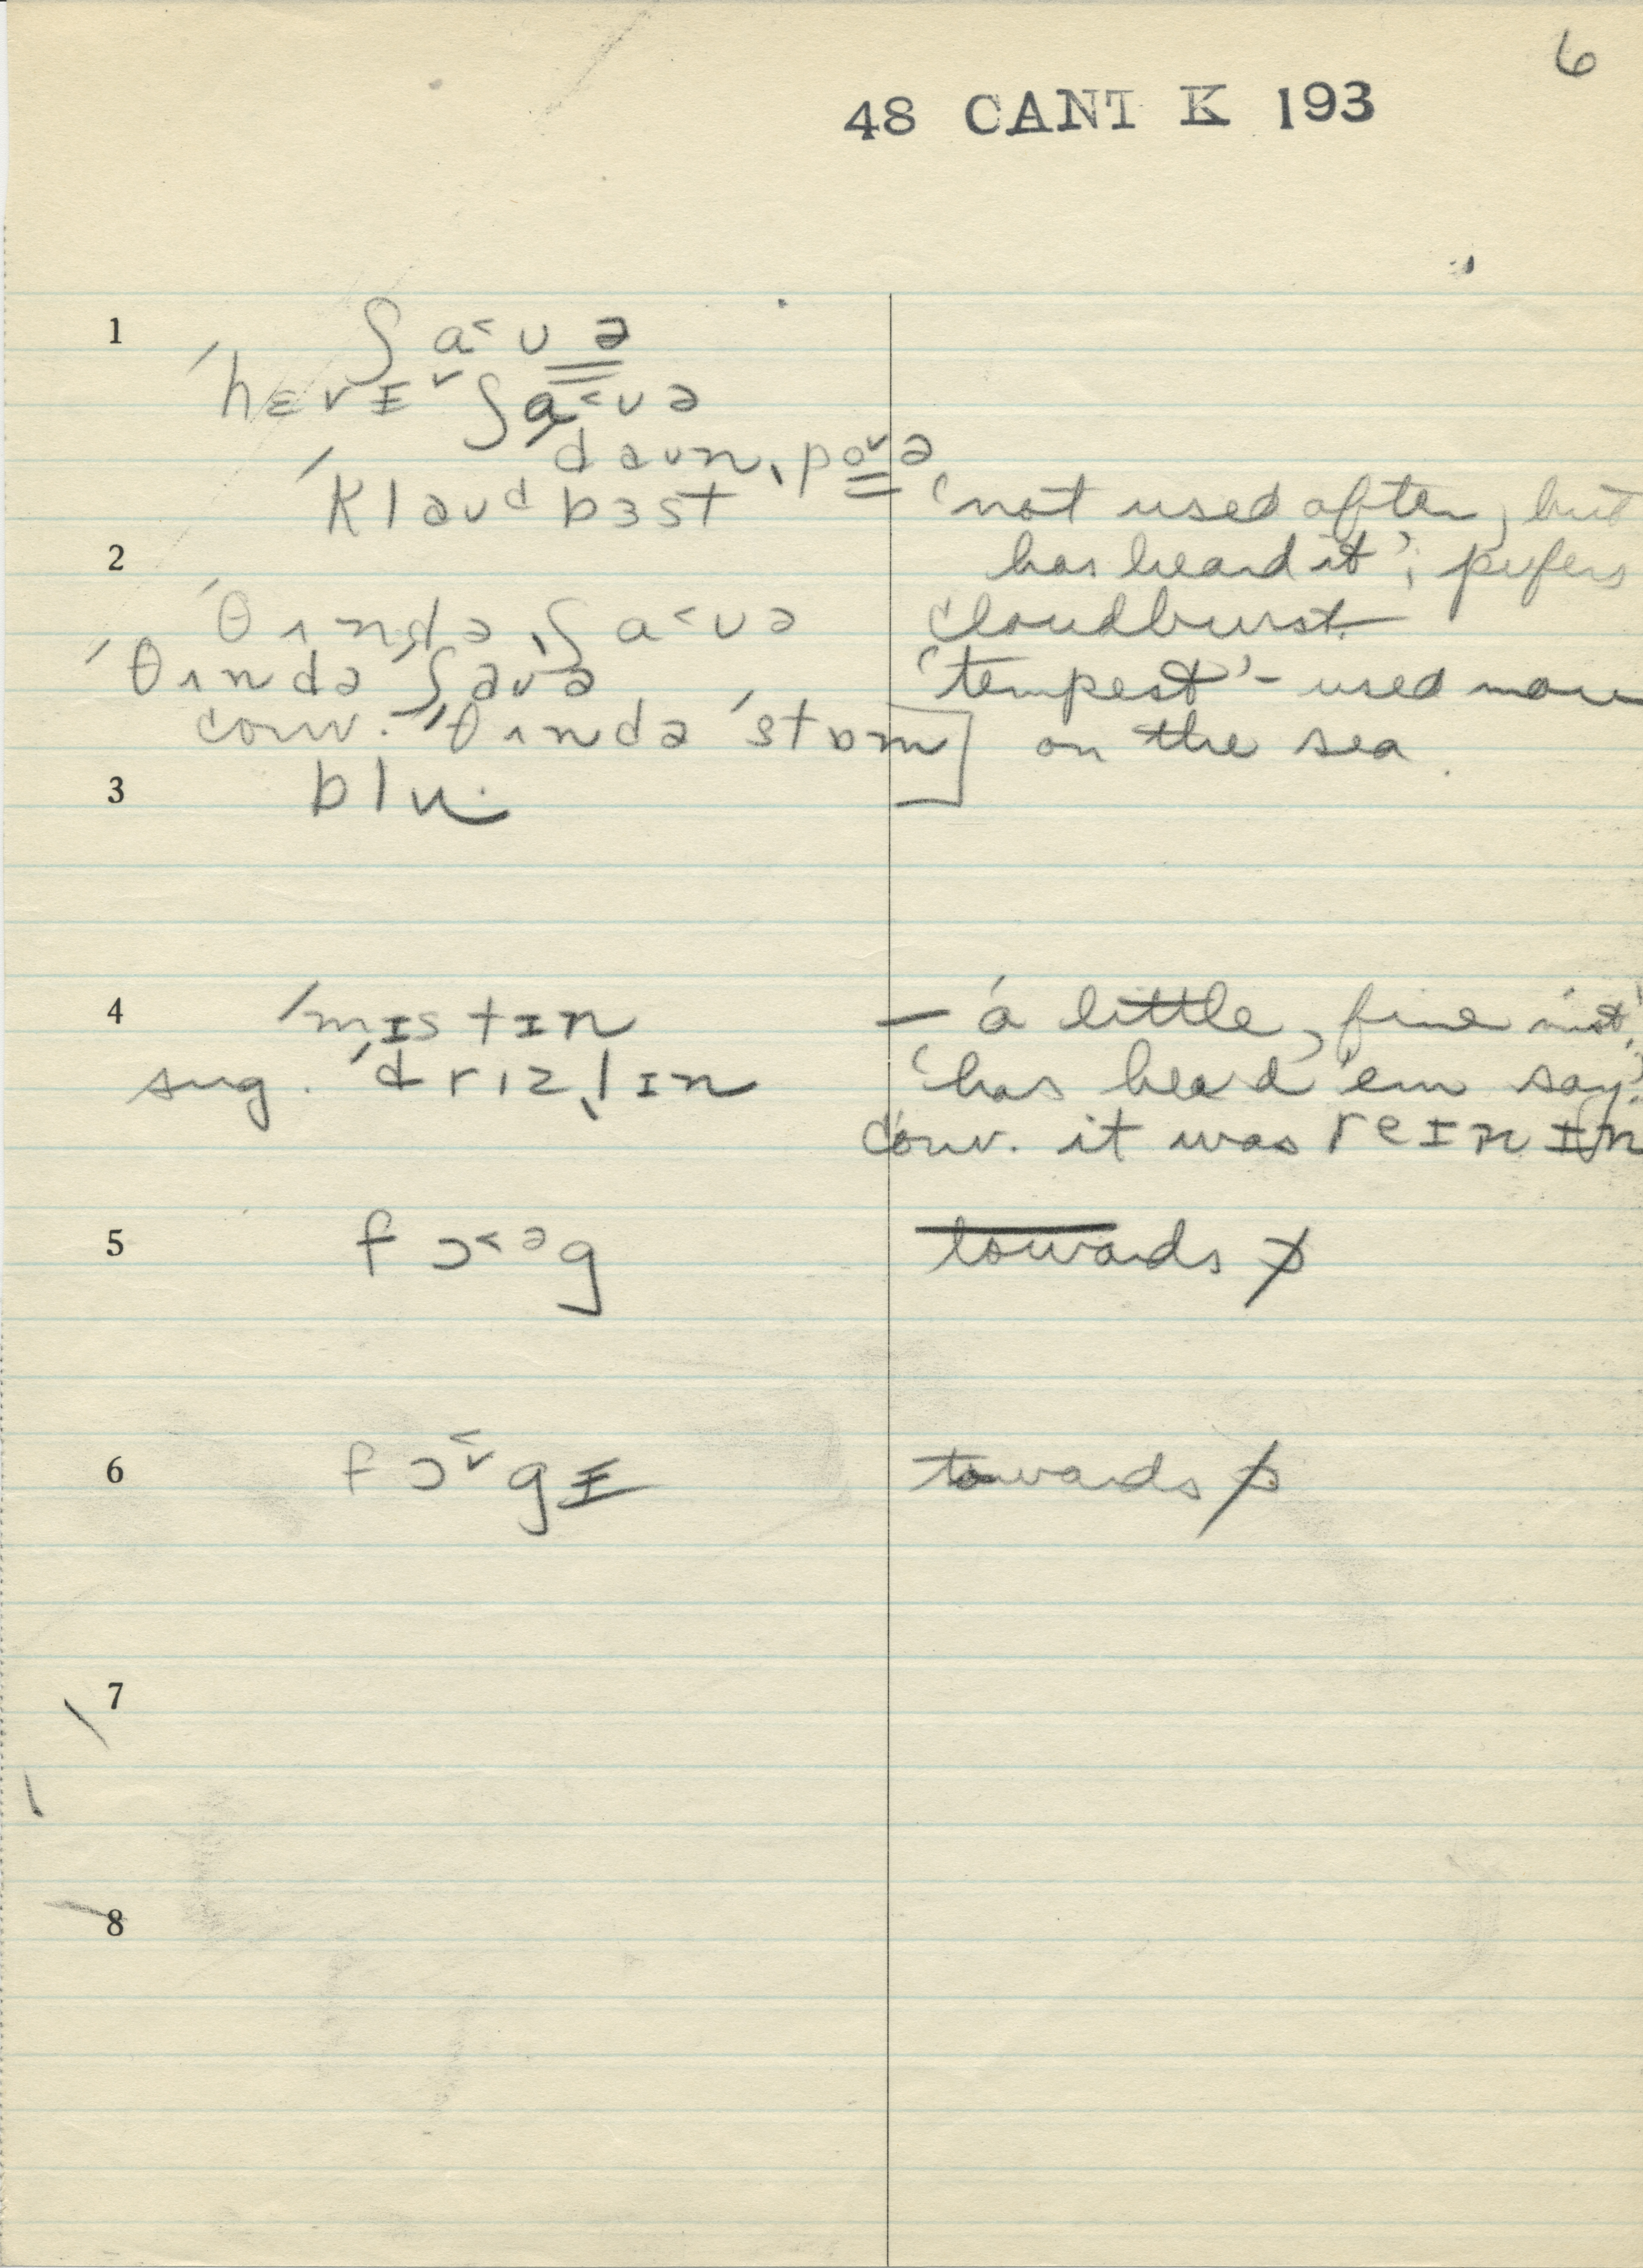 6
48 CANT K 193
1 ʃ a˂ ʊ ə
ˈhɛvɪ˅ ʃa˂ʊə
ˈdaʊnˌpo˅ə
ˈklaʊdbɜst 'not used often, but
2 has heard it'; prefers
ˈθʌndəˌʃa˂ʊə cloudburst.
ˈθʌndəˈʃaʊə 'tempest' - used more
conv. ˈθʌndəˈstɒm] on the sea.
3 blu·
4 ˈmɪstɪn — 'a little, fine mist'
sug. ˈdrɪzˌlɪn 'has heard 'em say'
conv. it was reɪnɪn
5 fɔ˂ᵊg towards ɒ
6 fɔ˂˅gɪ towards ɒ
7
8